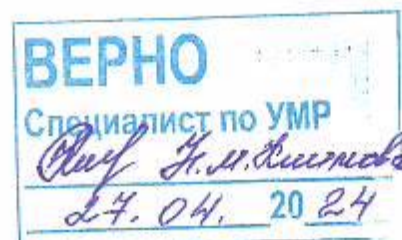 ВЕРНО
Специалист по УМР
Н.М.
27. 04. 2024